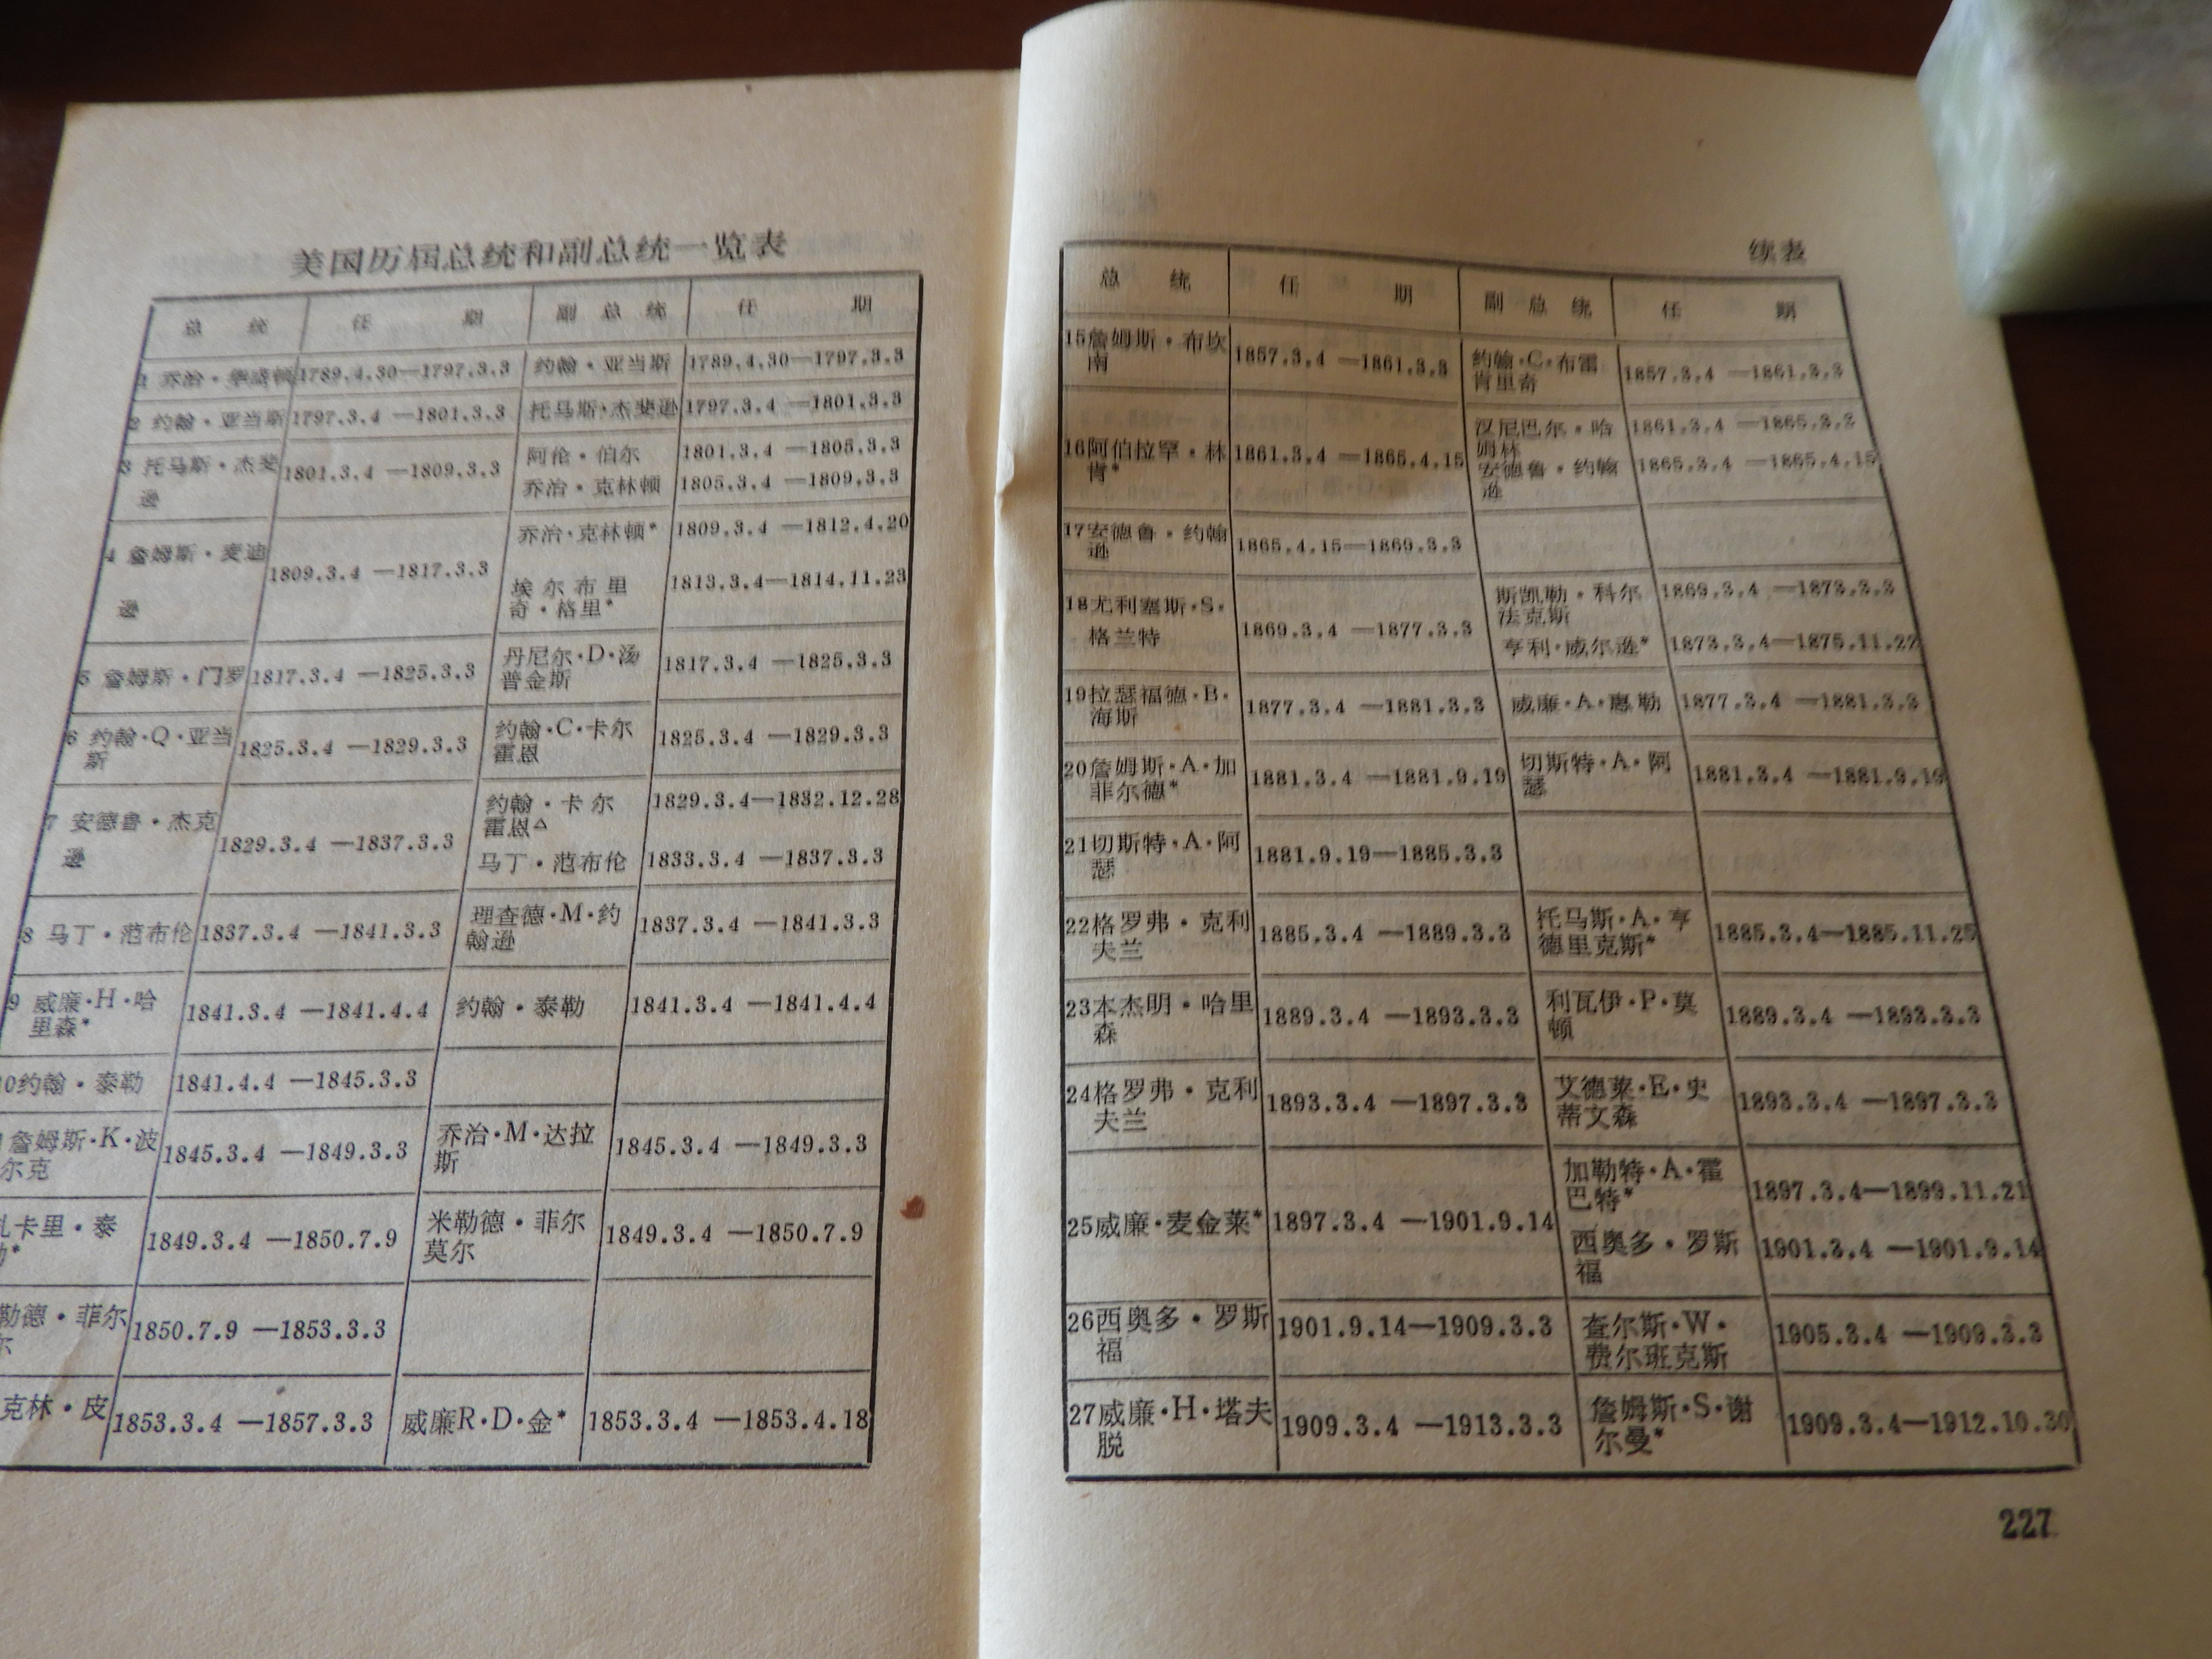 美国历届总统和副总统一览表
总 统 任 期 副 总 统 任 期
1 乔治·华盛顿 1789.4.30—1797.3.3 约翰·亚当斯 1789.4.30—1797.3.3
2 约翰·亚当斯 1797.3.4 —1801.3.3 托马斯·杰斐逊 1797.3.4 —1801.3.3
3 托马斯·杰斐 1801.3.4 —1809.3.3 阿伦·伯尔 1801.3.4 —1805.3.3
逊 乔治·克林顿 1805.3.4 —1809.3.3
4 詹姆斯·麦迪 1809.3.4 —1817.3.3 乔治·克林顿* 1809.3.4 —1812.4.20
逊 埃尔布里 1813.3.4—1814.11.23
奇·格里*
5 詹姆斯·门罗 1817.3.4 —1825.3.3 丹尼尔·D·汤 1817.3.4 —1825.3.3
普金斯
6 约翰·Q·亚当 1825.3.4 —1829.3.3 约翰·C·卡尔 1825.3.4 —1829.3.3
斯 霍恩
7 安德鲁·杰克 1829.3.4 —1837.3.3 约翰·卡尔 1829.3.4—1832.12.28
逊 霍恩△
马丁·范布伦 1833.3.4 —1837.3.3
8 马丁·范布伦 1837.3.4 —1841.3.3 理查德·M·约 1837.3.4 —1841.3.3
翰逊
9 威廉·H·哈 1841.3.4 —1841.4.4 约翰·泰勒 1841.3.4 —1841.4.4
里森*
0约翰·泰勒 1841.4.4 —1845.3.3
詹姆斯·K·波 1845.3.4 —1849.3.3 乔治·M·达拉 1845.3.4 —1849.3.3
尔克 斯
扎卡里·泰 1849.3.4 —1850.7.9 米勒德·菲尔 1849.3.4 —1850.7.9
勒* 莫尔
勒德·菲尔 1850.7.9 —1853.3.3
尔
克林·皮 1853.3.4 —1857.3.3 威廉R·D·金* 1853.3.4 —1853.4.18
续表
总 统 任 期 副 总 统 任 期
15詹姆斯·布坎 1857.3.4 —1861.3.3 约翰·C·布雷 1857.3.4 —1861.3.3
南 肯里奇
16阿伯拉罕·林 1861.3.4 —1865.4.15 汉尼巴尔·哈 1861.3.4 —1865.3.3
肯* 姆林
安德鲁·约翰 1865.3.4 —1865.4.15
逊
17安德鲁·约翰 1865.4.15—1869.3.3
逊
18尤利塞斯·S· 1869.3.4 —1877.3.3 斯凯勒·科尔 1869.3.4 —1873.3.3
格兰特 法克斯
亨利·威尔逊* 1873.3.4—1875.11.22
19拉瑟福德·B· 1877.3.4 —1881.3.3 威廉·A·惠勒 1877.3.4 —1881.3.3
海斯
20詹姆斯·A·加 1881.3.4 —1881.9.19 切斯特·A·阿 1881.3.4 —1881.9.19
菲尔德* 瑟
21切斯特·A·阿 1881.9.19—1885.3.3
瑟
22格罗弗·克利 1885.3.4 —1889.3.3 托马斯·A·亨 1885.3.4—1885.11.25
夫兰 德里克斯*
23本杰明·哈里 1889.3.4 —1893.3.3 利瓦伊·P·莫 1889.3.4 —1893.3.3
森 顿
24格罗弗·克利 1893.3.4 —1897.3.3 艾德莱·E·史 1893.3.4 —1897.3.3
夫兰 蒂文森
25威廉·麦金莱* 1897.3.4 —1901.9.14 加勒特·A·霍 1897.3.4—1899.11.21
巴特*
西奥多·罗斯 1901.3.4 —1901.9.14
福
26西奥多·罗斯 1901.9.14—1909.3.3 查尔斯·W· 1905.3.4 —1909.3.3
福 费尔班克斯
27威廉·H·塔夫 1909.3.4 —1913.3.3 詹姆斯·S·谢 1909.3.4—1912.10.30
脱 尔曼*
227